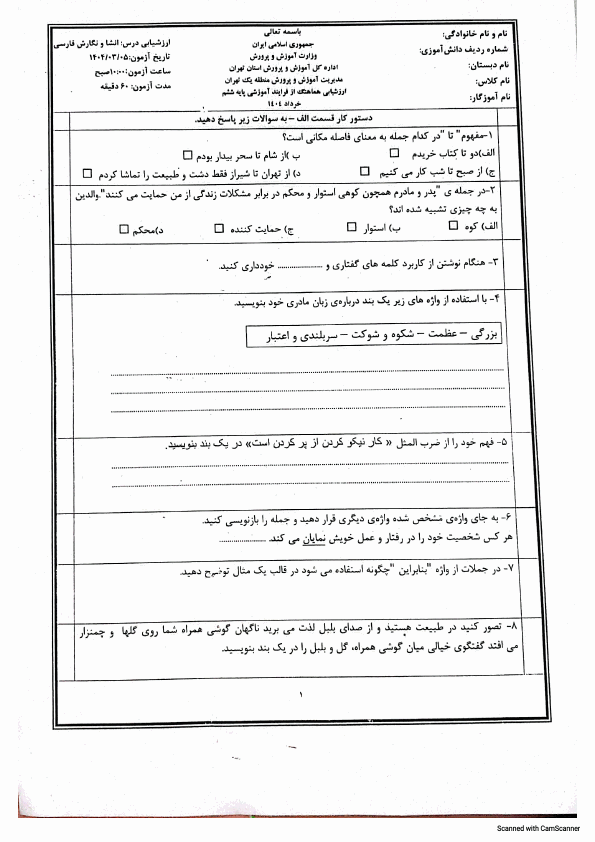 باسمه تعالی
نام و نام خانوادگی:
شماره ردیف دانش‌آموزی:
نام دبستان:
نام کلاس:
نام آموزگار:
جمهوری اسلامی ایران
وزارت آموزش و پرورش
اداره کل آموزش و پرورش استان تهران
مدیریت آموزش و پرورش منطقه یک تهران
ارزشیابی هماهنگ از فرایند آموزشی پایه ششم
خرداد ۱۴۰۴
ارزشیابی درس: انشا و نگارش فارسی
تاریخ آزمون: ۱۴۰۴/۰۳/۰۵
ساعت آزمون: ۱۰:۰۰صبح
مدت آزمون: ۶۰ دقیقه
دستور کار قسمت الف - به سوالات زیر پاسخ دهید.
۱-مفهوم" تا "در کدام جمله به معنای فاصله مکانی است؟
الف)دو تا کتاب خریدم ☐ ب )از شام تا سحر بیدار بودم ☐
ج) از صبح تا شب کار می کنیم ☐ د) از تهران تا شیراز فقط دشت و طبیعت را تماشا کردم ☐
۲-در جمله ی "پدر و مادرم همچون کوهی استوار و محکم در برابر مشکلات زندگی از من حمایت می کنند".والدین
به چه چیزی تشبیه شده اند؟
الف) کوه ☐ ب) استوار ☐ ج) حمایت کننده ☐ د)محکم ☐
۳- هنگام نوشتن از کاربرد کلمه های گفتاری و .................. خودداری کنید.
۴- با استفاده از واژه های زیر یک بند درباره‌ی زبان مادری خود بنویسید.
بزرگی – عظمت – شکوه و شوکت – سربلندی و اعتبار
۵- فهم خود را از ضرب المثل « کار نیکو کردن از پر کردن است» در یک بند بنویسید.
۶- به جای واژه‌ی مشخص شده واژه‌ی دیگری قرار دهید و جمله را بازنویسی کنید.
هر کس شخصیت خود را در رفتار و عمل خویش نمایان می کند. ..................
۷- در جملات از واژه "بنابراین "چگونه استفاده می شود در قالب یک مثال توضیح دهید.
۸- تصور کنید در طبیعت هستید و از صدای بلبل لذت می برید ناگهان گوشی همراه شما روی گلها و چمنزار
می افتد گفتگوی خیالی میان گوشی همراه، گل و بلبل را در یک بند بنویسید.
۱
Scanned with CamScanner